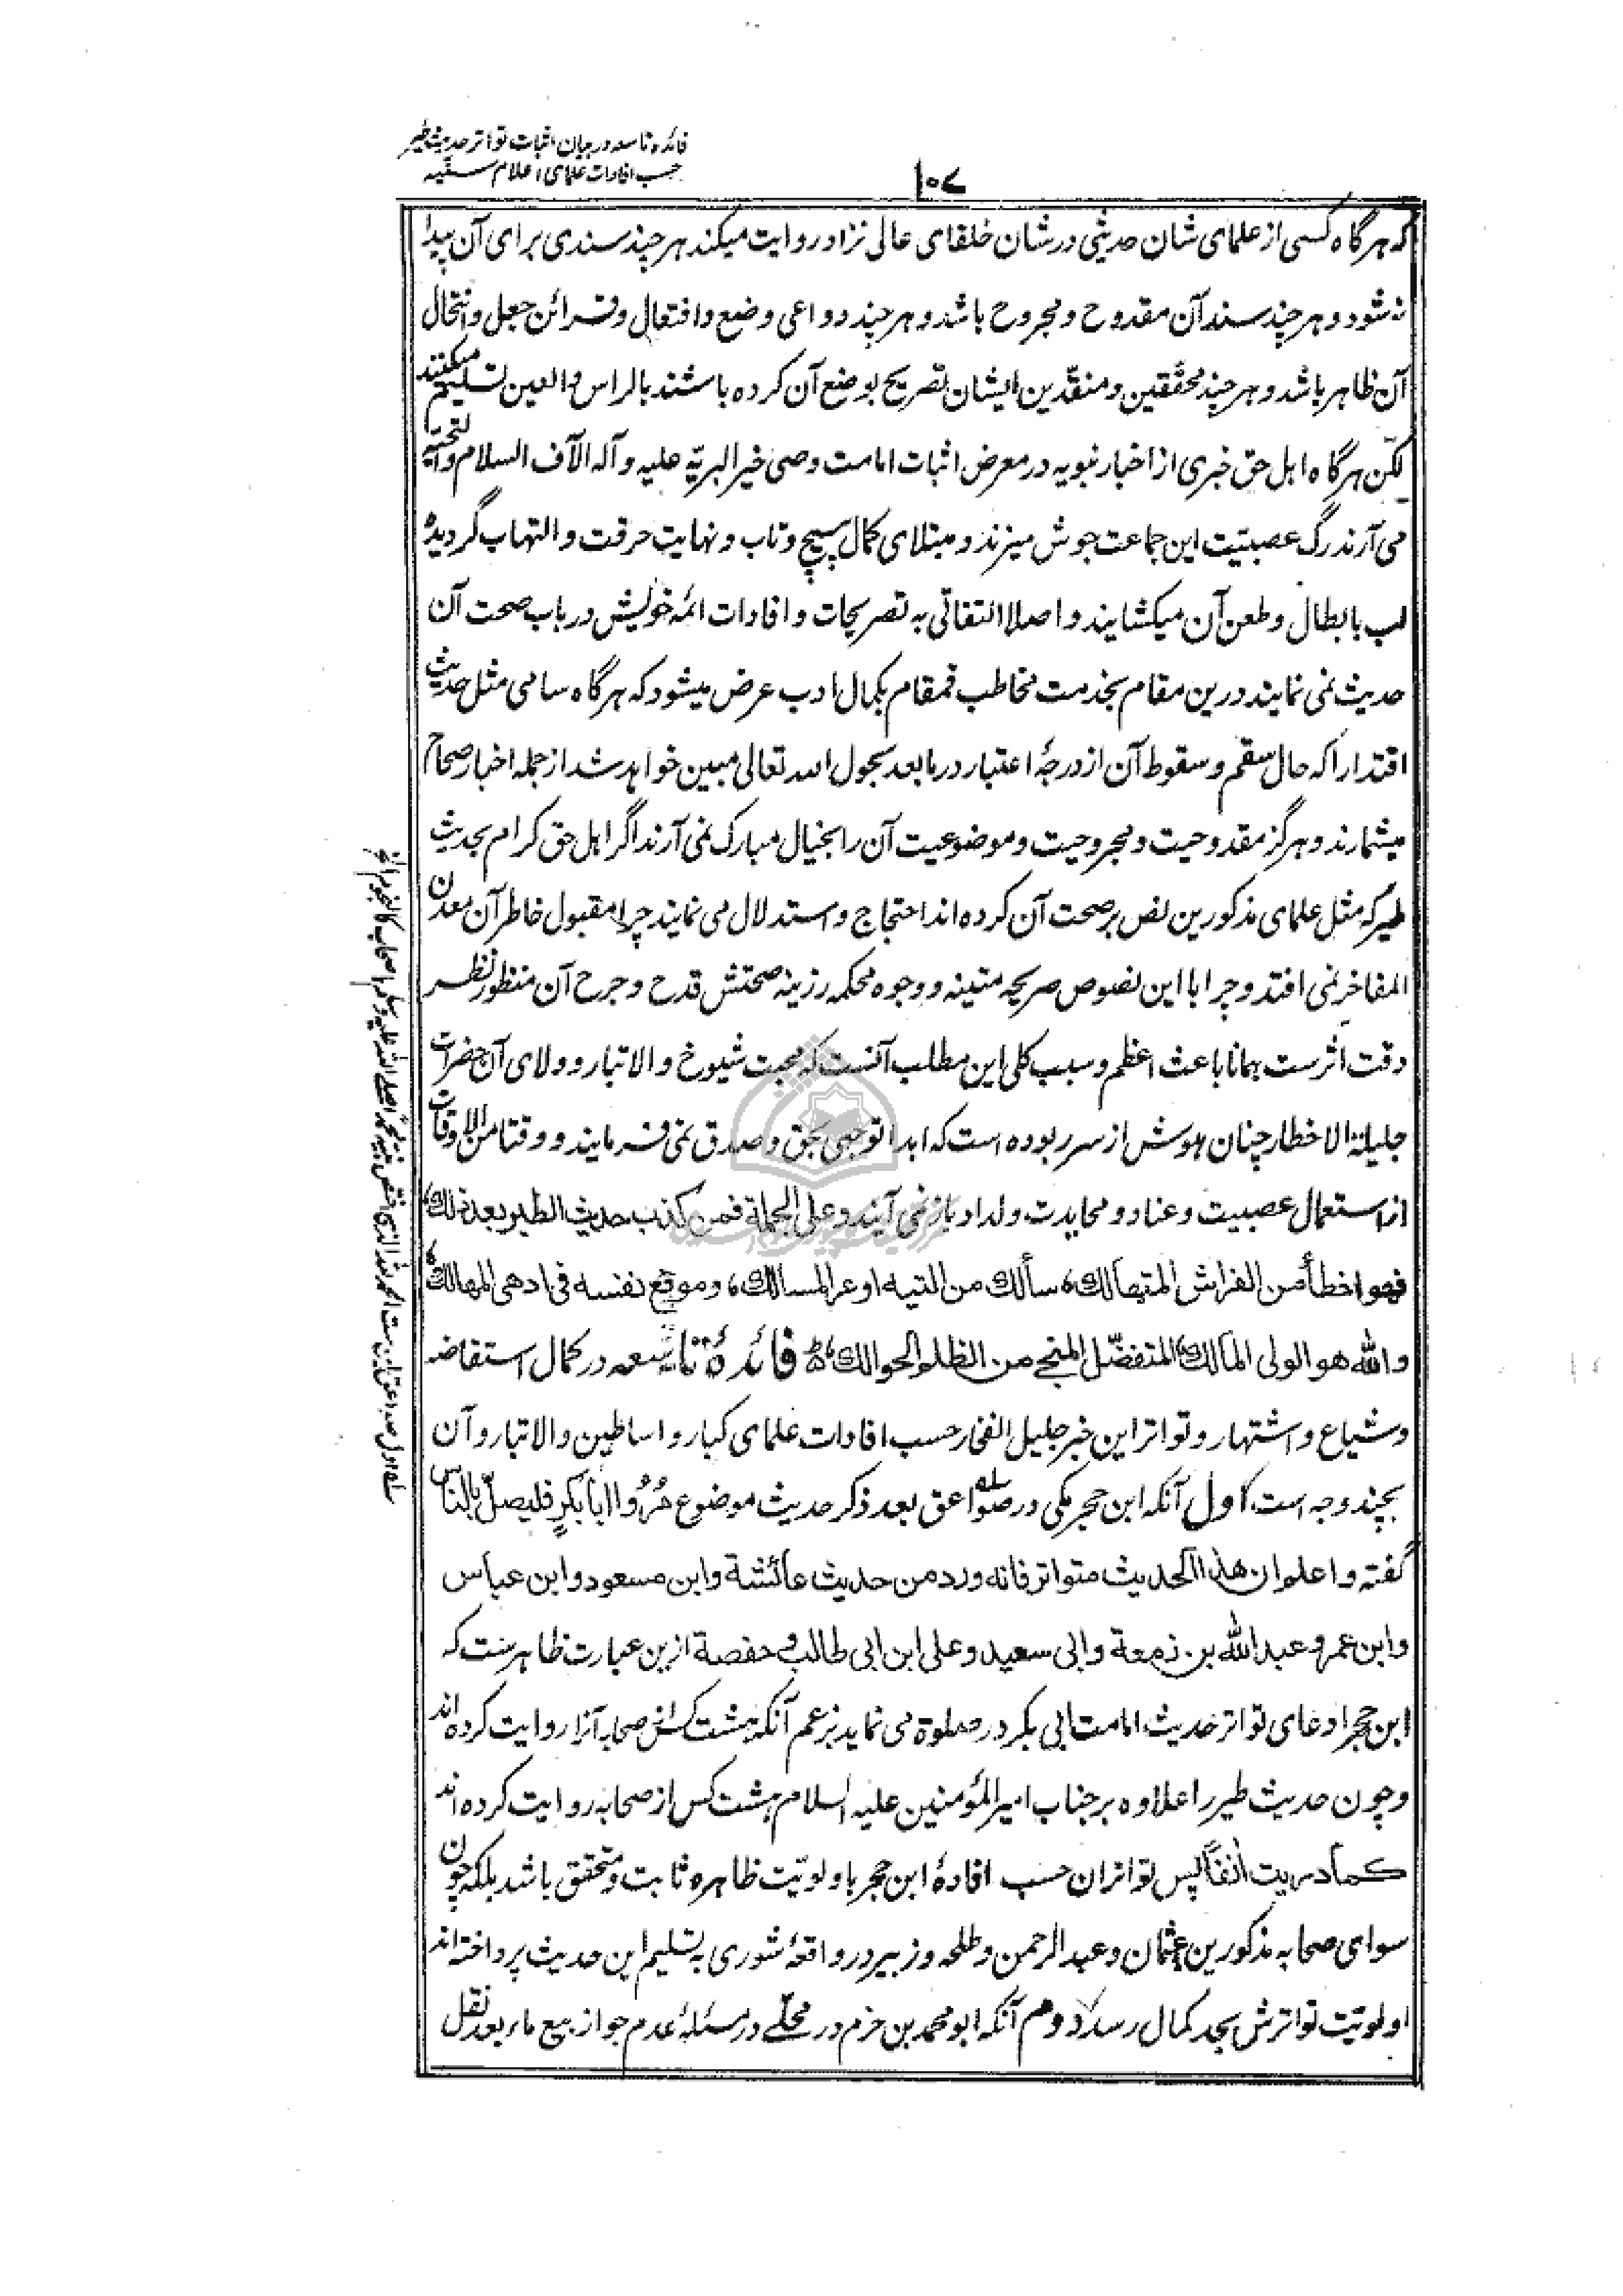 فائده تاسعه در بیان اثبات تواتر حدیث طیر
حسب افادات علمای اعلام سنّیه
۱۰۷
که هرگاه کسی از علمای شان حدیثی در شان خلفای عالی نژاد روایت میکند هر چند سندی برای آن پیدا
نشود و هر چند سند آن مقدوح و مجروح باشد و هر چند دواعی وضع و افتعال و قرائن جعل و انتحال
آن ظاهر باشد و هر چند محققین و منقدین ایشان تصریح بوضع آن کرده باشند بالراس و العین تسلیم میکنند
لکن هرگاه اهل حق خبری از اخبار نبویه در معرض اثبات امامت وصی خیر البریّه علیه و آله الآف السلام والتحیّه
می آرند رگ عصبیّت این جماعت جوش میزند و مبتلای کمال پیچ و تاب و نهایت حرقت و التهاب گردیده
لب بابطال و طعن آن میکشایند و اصلا التفاتی به تصریحات و افادات ائمه خویش در باب صحت آن
حدیث نمی نمایند درین مقام بخدمت مخاطب قمقام بکمال ادب عرض میشود که هرگاه سامی مثل حدیث
اقتدار را که حال سقم و سقوط آن از درجهٔ اعتبار در ما بعد بحول الله تعالی مبین خواهد شد از جمله اخبار صحاح
میشمارند و هرگز مقدوحیت و مجروحیت و موضوعیت آن را بخیال مبارک نمی آرند اگر اهل حق کرام بحدیث
طیر که مثل علمای مذکورین نص بر صحت آن کرده اند احتجاج و استدلال می نمایند چرا مقبول خاطر آن معدن
المفاخر نمی افتد و چرا با این نصوص صریحه متینه و وجوه محکمه رزینه صحتش قدح و جرح آن منظور نظر
دقت اثرست همانا باعث اعظم و سبب کلی این مطلب آنست که محبت شیوخ والا تبار و ولای آن حضرات
جلیلة الاخطار چنان هوش از سر ربوده است که ابدا توجهی بحق و صدق نمی فرمایند و وقتا من الاوقات
از استعمال عصبیت و عناد و محایدت و لداد باز نمی آیند وعلی الجملة فمن کذب حدیث الطیر بعد ذلك
فهو اخطأ من الفراش المتهالك، سالك من التیه اوعر المسالك، وموقع نفسه فی ادهی المهالك
والله هو الولی المالك، المتفضّل المنجی من الظلم الحوالك، فائدهٔ تاسعه در کمال استفاضه
و شیاع و اشتهار و تواتر این خبر جلیل الفخار حسب افادات علمای کبار و اساطین والاتبار و آن
بچند وجه است اول آنکه ابن حجر مکی در صواعق بعد ذکر حدیث موضوع مُرُوا ابا بکرٍ فلیصلّ بالناس
گفته واعلم ان هذا الحدیث متواتر فانه ورد من حدیث عائشة وابن مسعود وابن عباس
وابن عمر وعبد الله بن زمعة وابی سعید وعلی ابن ابی طالب و حفصة ازین عبارت ظاهرست که
ابن حجر ادعای تواتر حدیث امامت ابی بکر در صلوة می نماید بزعم آنکه هشت کس از صحابه آنرا روایت کرده اند
و چون حدیث طیر را علاوه بر جناب امیر المؤمنین علیه السلام هشت کس از صحابه روایت کرده اند
کما دریت انفاً پس تواتر ان حسب افادهٔ ابن حجر باولویّت ظاهره ثابت و متحقق باشد بلکه چون
سوای صحابه مذکورین عثمان و عبد الرحمن و طلحه و زبیر در واقعهٔ شوری به تسلیم این حدیث پرداخته اند
اولویّت تواترش بحد کمال رسد دوم آنکه ابو محمد بن حزم در محلّے در مسئلهٔ عدم جواز بیع ماء بعد نقل